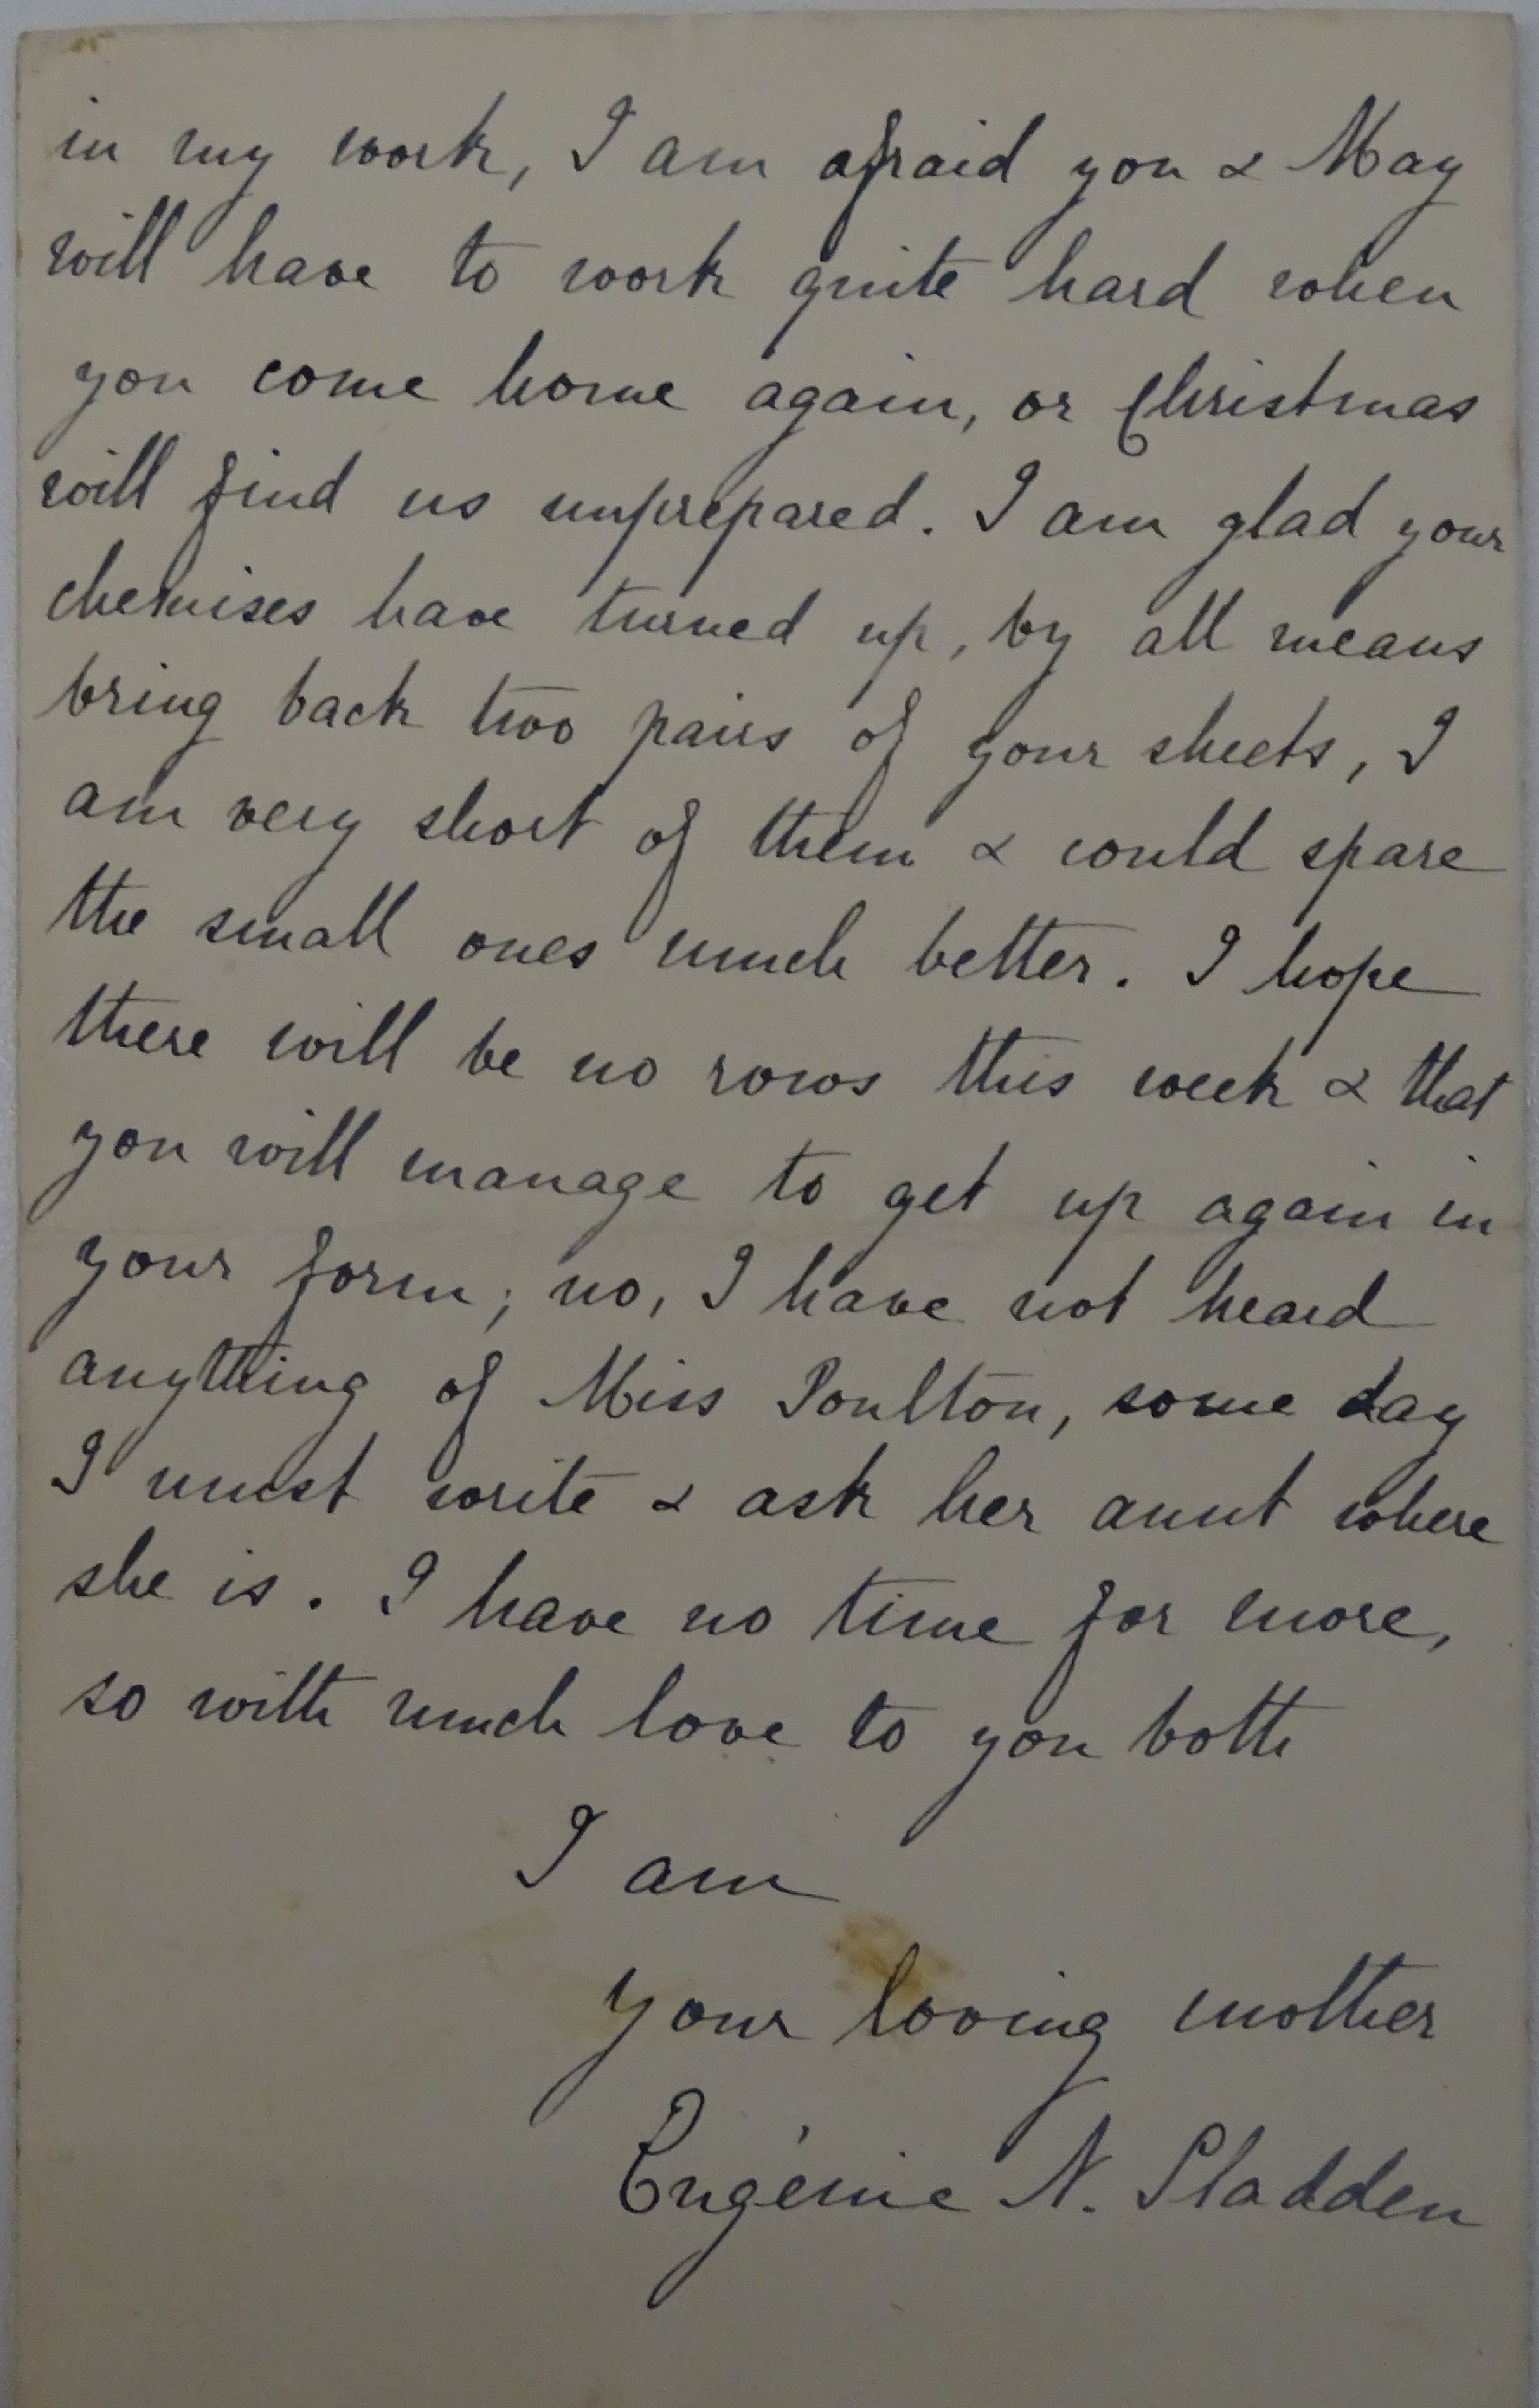 in my work, I am afraid you & May
will have to work quite hard when
you come home again, or Christmas
will find us unprepared. I am glad your
chemises have turned up, by all means
bring back two pairs of your sheets, I
am very short of them & could spare
the small ones much better. I hope
there will be no rows this week & that
you will manage to get up again in
your form; no, I have not heard
anything of Miss Poulton, some day
I must write & ask her aunt where
she is. I have no time for more,
so with much love to you both
I am
your loving mother
Eugénie N. Sladden